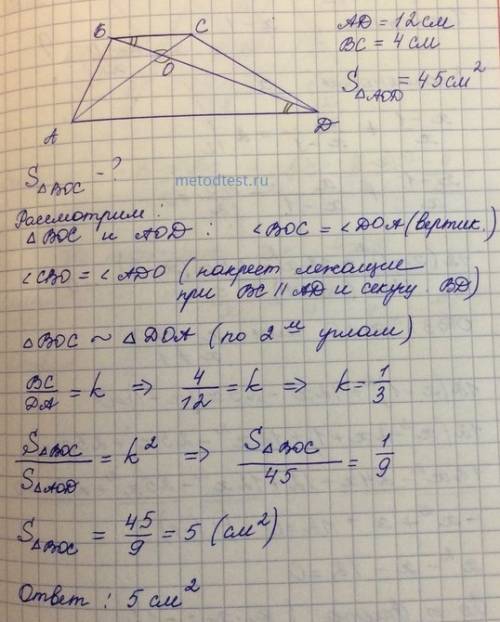 B C
O
A D
AD = 12 см
BC = 4 см
S△AOD = 45 см²
S△BOC - ?
metodtest.ru
Рассмотрим:
△BOC и AOD: ∠BOC = ∠DOA (вертик.)
∠CBO = ∠ADO (накрест лежащие
при BC || AD и секущ. BD)
△BOC ~ △DOA (по 2м углам)
BC/DA = k ⇒ 4/12 = k ⇒ k = 1/3
S△BOC/S△AOD = k² ⇒ S△BOC/45 = 1/9
S△BOC = 45/9 = 5 (см²)
Ответ: 5 см²